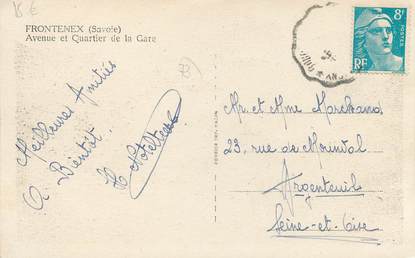 8 €
FRONTENEX (Savoie)
Avenue et Quartier de la Gare
73)
Meilleures Amitiés
A Bientôt.
8F
POSTES
RF
Mr. et Mme Marchand
23, rue de
Argenteuil
Seine-et-Oise